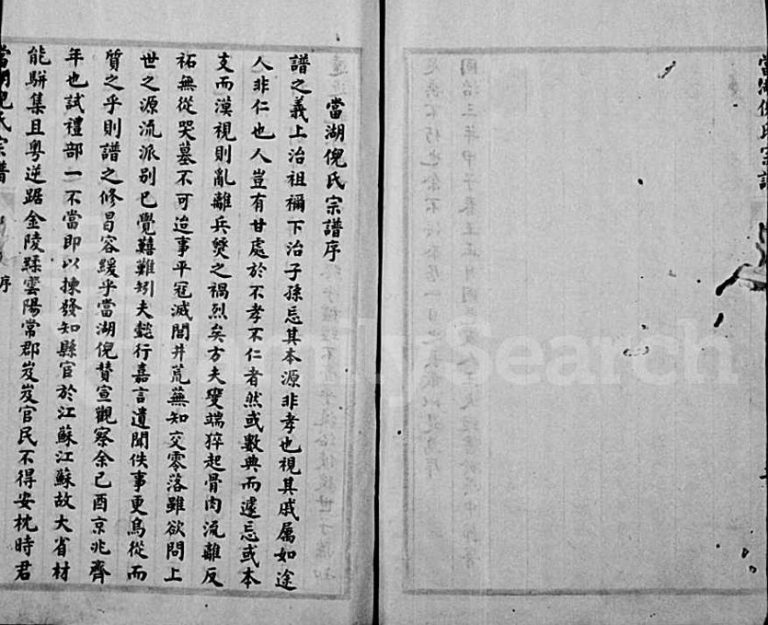 當湖倪氏宗譜序
譜之義上治祖禰下治子孫忘其本源非孝也視其戚属如途
人非仁也人豈有甘處於不孝不仁者然或數典而遽忘或本
支而漠視則亂離兵燹之禍烈矣方夫變端猝起骨肉流離反
祏無從哭墓不可迨事平寇滅閭井荒蕪知交零落雖欲問上
世之源流派别已覺囏難矧夫懿行嘉言遺聞佚事更烏從而
質之乎則譜之修曷容緩乎當湖倪賛宣觀察余己酉京兆齊
年也試禮部一不當即以揀發知縣官於江蘇江蘇故大省材
能駢集且粤逆踞金陵蹂雲陽常郡岌岌官民不得安枕時君
當湖倪氏宗譜
序
當湖倪氏宗譜
FamilySearch